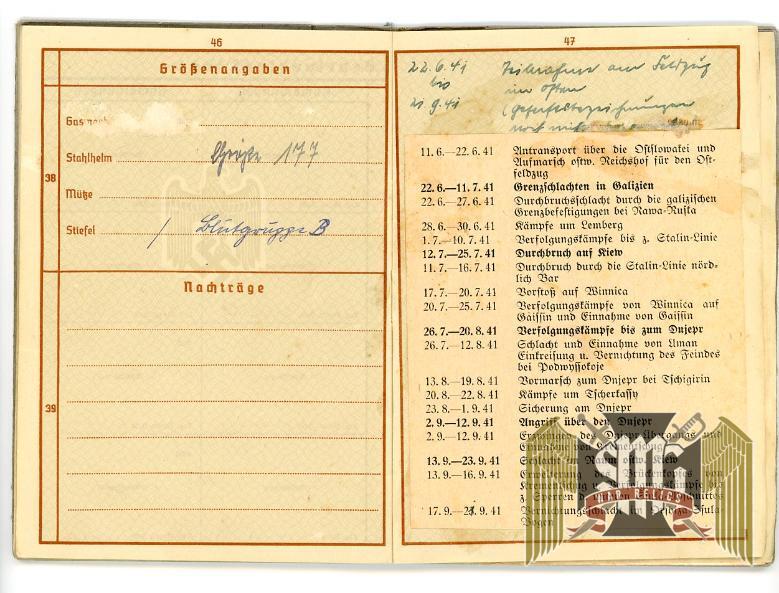 46
Größenangaben
Gasmask
Stahlhelm Größe 177
38
Mütze
Stiefel / Blutgruppe B
Nachträge
39
47
22.6.41 Teilnahme am Feldzug
bis im Osten
21.9.41 (Gefechtsbezeichnungen
11.6.—22.6.41 Antransport über die Ostslowakei und
Aufmarsch ostw. Reichshof für den Ost-
feldzug
22.6.—11.7.41 Grenzschlachten in Galizien
22.6.—27.6.41 Durchbruchsschlacht durch die galizischen
Grenzbefestigungen bei Rawa-Ruska
28.6.—30.6.41 Kämpfe um Lemberg
1.7.—10.7.41 Verfolgungskämpfe bis z. Stalin-Linie
12.7.—25.7.41 Durchbruch auf Kiew
11.7.—16.7.41 Durchbruch durch die Stalin-Linie nörd-
lich Bar
17.7.—20.7.41 Vorstoß auf Winnica
20.7.—25.7.41 Verfolgungskämpfe von Winnica auf
Gaissin und Einnahme von Gaissin
26.7.—20.8.41 Verfolgungskämpfe bis zum Dnjepr
26.7.—12.8.41 Schlacht und Einnahme von Uman
Einkreisung u. Vernichtung des Feindes
bei Podwyssokoje
13.8.—19.8.41 Vormarsch zum Dnjepr bei Tschigirin
20.8.—22.8.41 Kämpfe um Tscherkassy
23.8.—1.9.41 Sicherung am Dnjepr
2.9.—12.9.41 Angriff über den Dnjepr
2.9.—12.9.41 Erzwingen des Dnjepr-Übergangs und
von
13.9.—23.9.41 Schlacht im Raum ostw. Kiew
13.9.—16.9.41 Erweiterung des Brückenkopfes von
Krementschug u. Verfolgungskämpfe bis
z. Sperren
17.9.—21.9.41 Vernichtungsschlacht
Bogen
RELICS